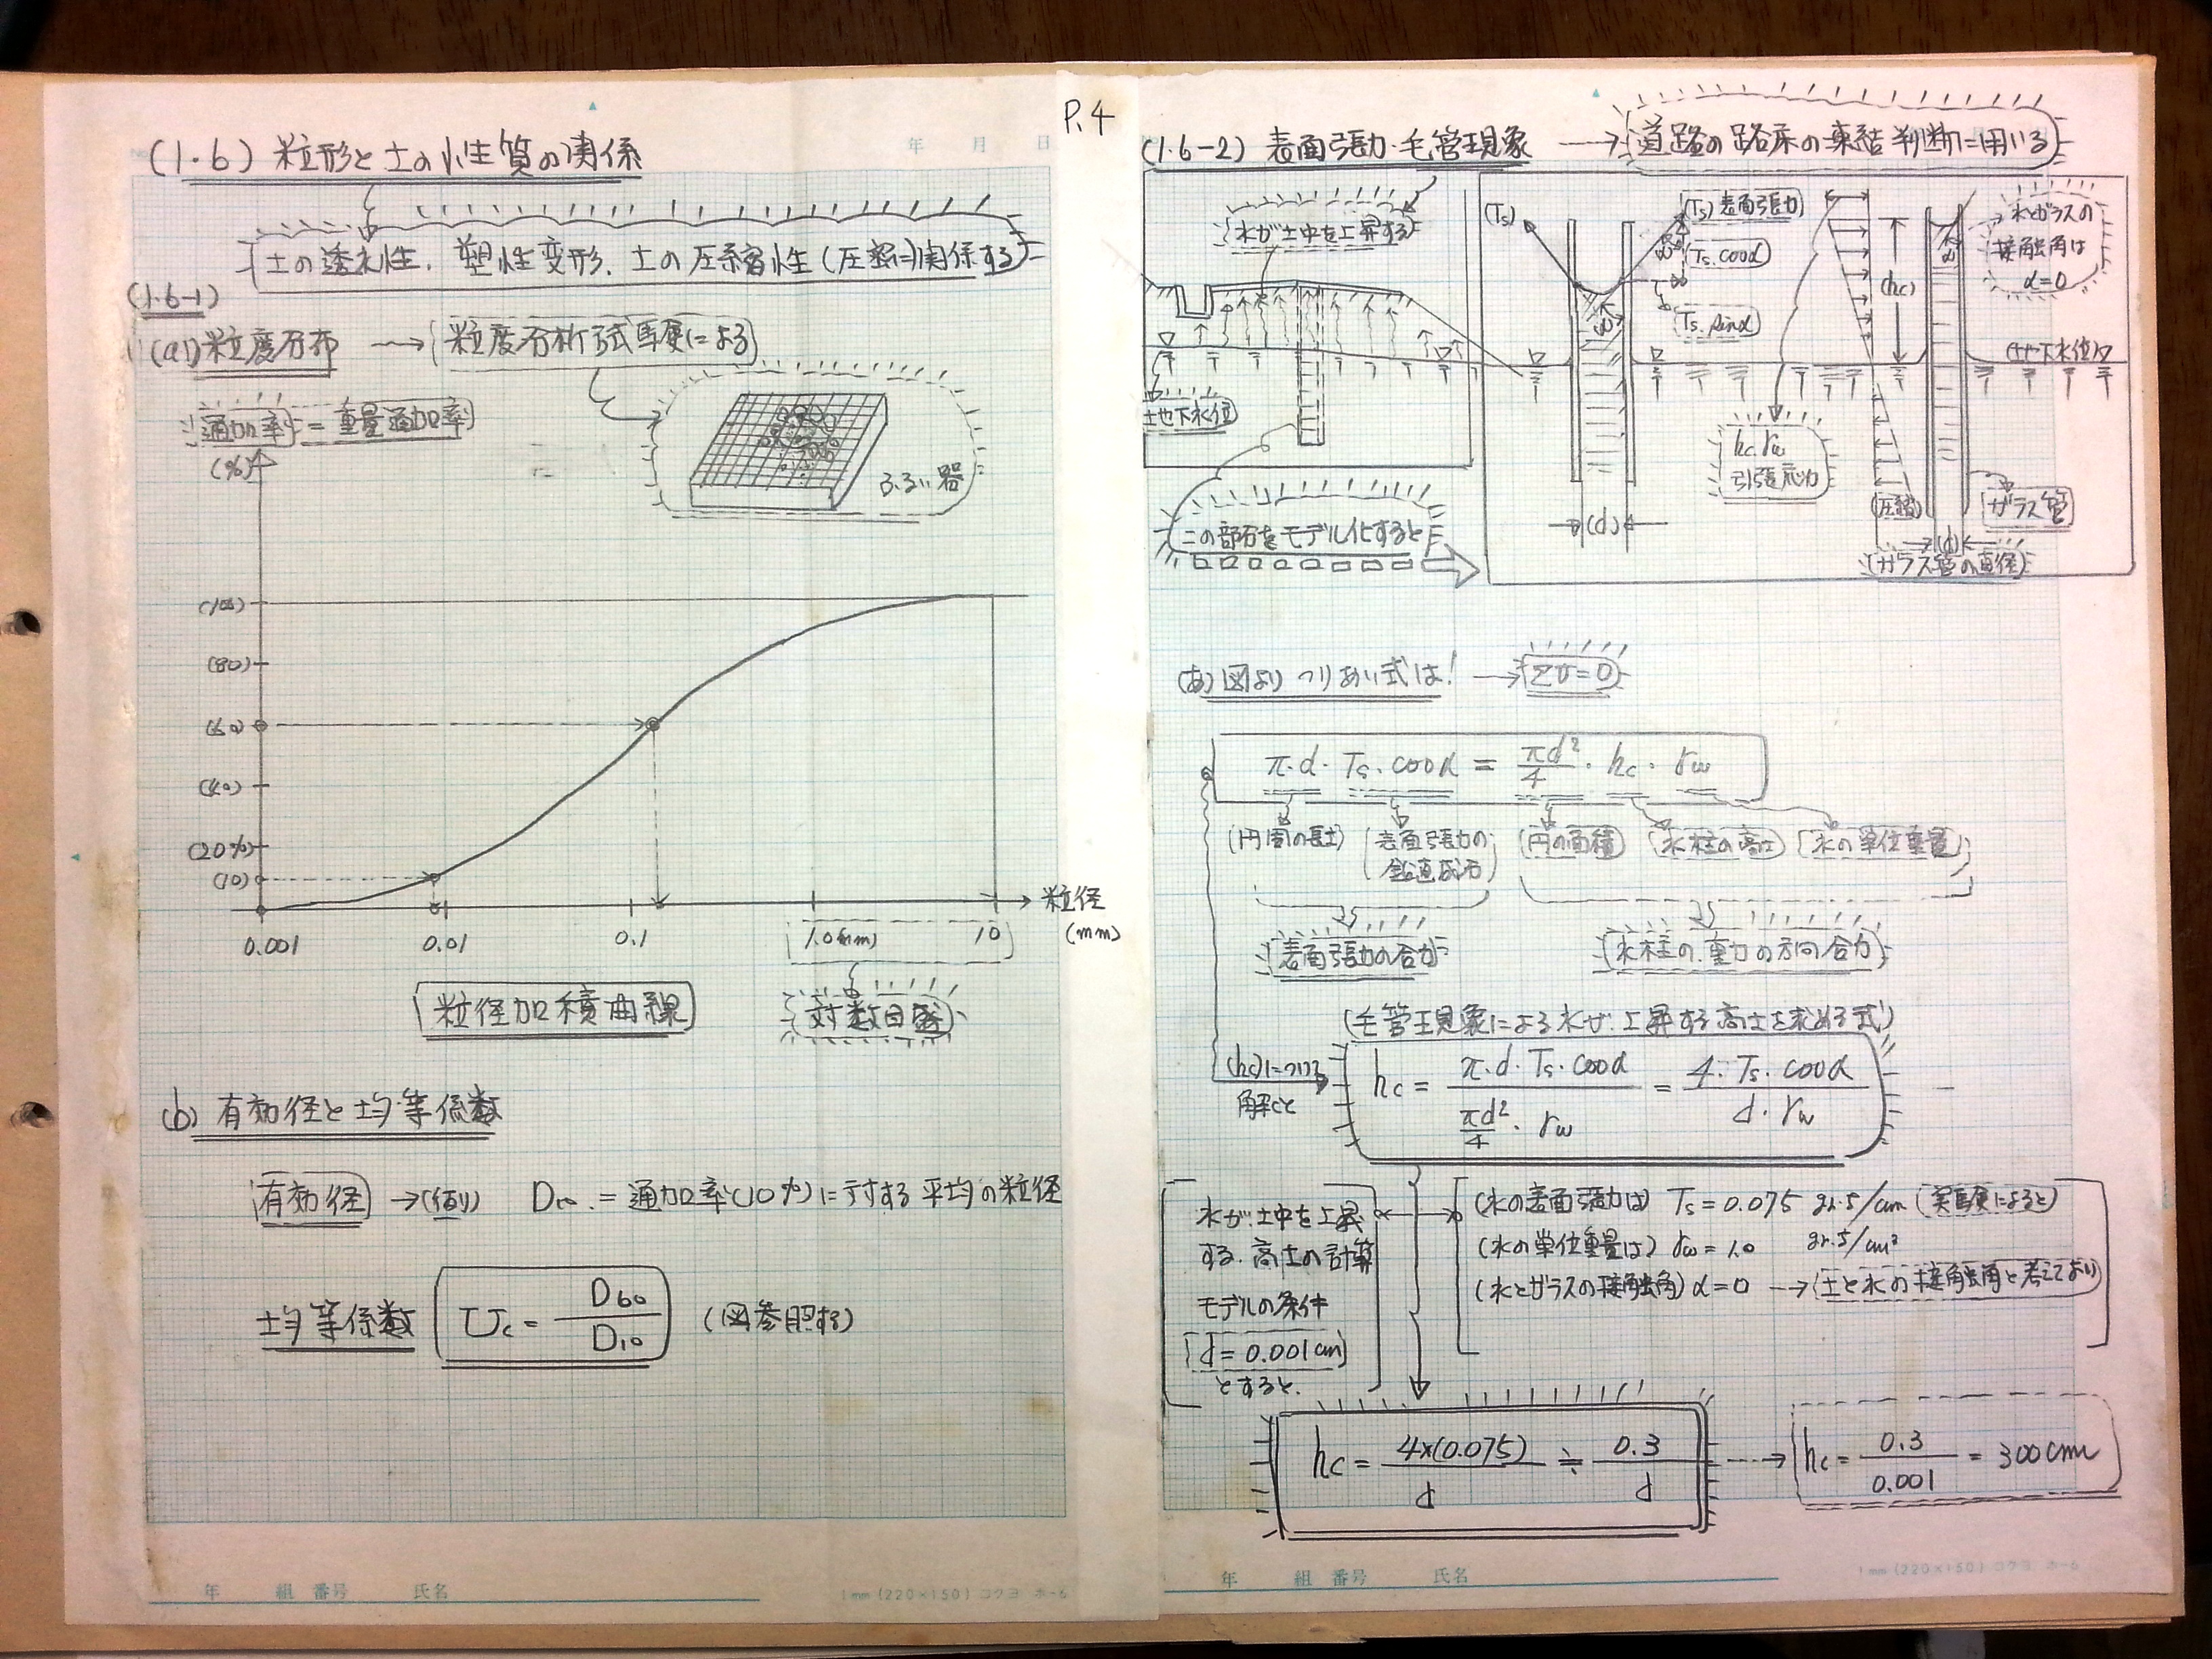 P.4
(1.6) 粒形と土の性質の関係
土の透水性、塑性変形、土の圧縮性(圧密)に関係する
(1.6-1)
(a) 粒度分布 → 粒度分析試験による
通加率 = 重量通加率
(%)
ふるい器
(100)
(80)
(60)
(40)
(20%)
(10)
0.001 0.01 0.1 1.0(mm) 10
粒径
(mm)
粒径加積曲線
対数目盛
(b) 有効径と均等係数
有効径 →(例) D₁₀ = 通加率(10%)に対する平均の粒径
均等係数 Uc = D60/D10 (図参照する)
年 組 番号 氏名
1mm(220×150)コクヨ ホ-6
年 月 日
(1.6-2) 表面張力・毛管現象 → 道路の路床の凍結判断に用いる
水が土中を上昇する
地下水位
この部分をモデル化すると
(Ts)
(Ts)表面張力
Ts.cosα
Ts.sinα
hc.rw
引張応力
(hc)
水とガラスの
接触角は
α=0
(地下水位)
(圧縮)
ガラス管
(d)
(d)
(ガラス管の直径)
(あ) 図より つりあい式は! → ΣV=0
π.d.Ts.cosα = πd²/4 . hc . rw
(円周の長さ) (表面張力の鉛直成分) (円の面積) (水柱の高さ) (水の単位重量)
表面張力の合力
水柱の重力の方向合力
(毛管現象による水が上昇する高さを求める式)
(hc)について
解くと
hc = π.d.Ts.cosα / πd²/4 . rw = 4.Ts.cosα / d.rw
水が土中を上昇
する高さの計算
モデルの条件
d=0.001cm
とすると、
(水の表面張力は) Ts=0.075 gr.s/cm (実験によると)
(水の単位重量は) rw=1.0 gr.s/cm³
(水とガラスの接触角) α=0 → (土と水の接触角と考えており)
hc = 4×(0.075)/d ≒ 0.3/d
hc = 0.3/0.001 = 300cm
年 組 番号 氏名
1mm(220×150)コクヨ ホ-6